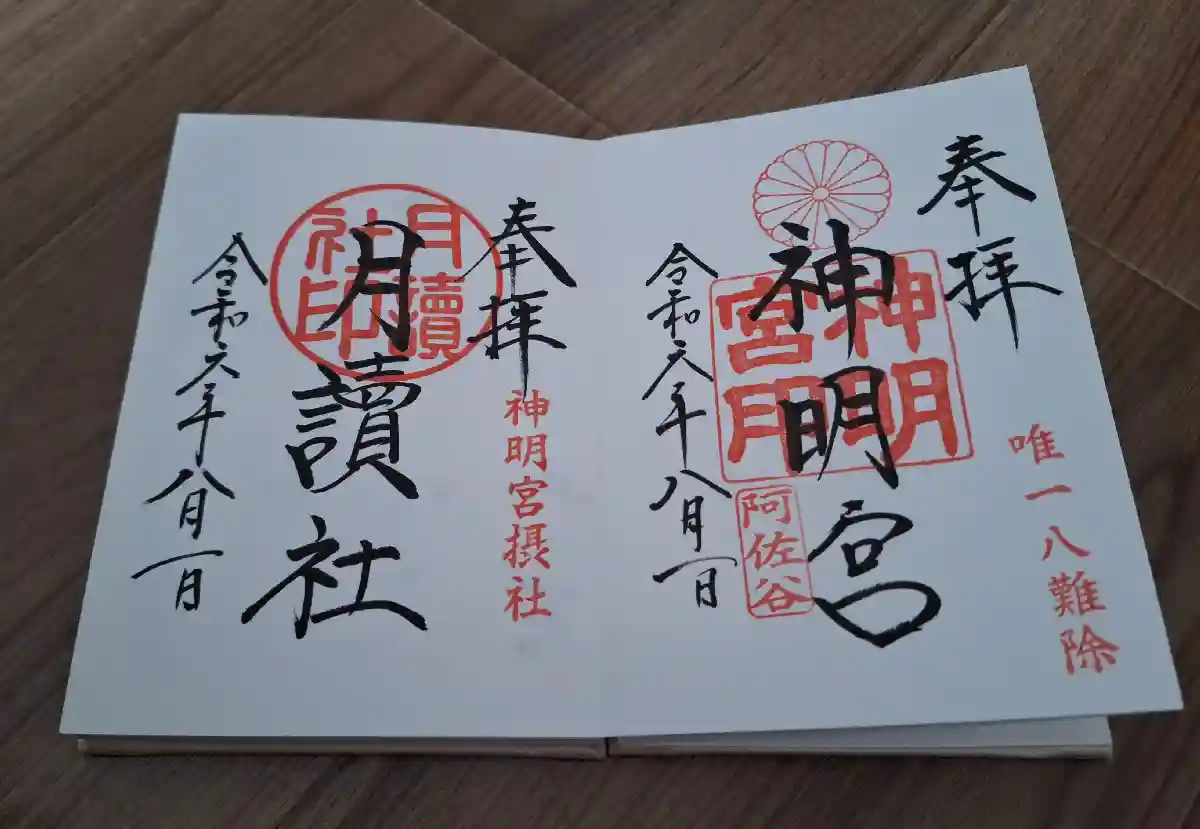 奉拝
唯一八難除
神明宮
神明
宮印
阿佐谷
令和六年八月一日
奉拝
神明宮摂社
月讀社
月瀆
社印
令和六年八月一日